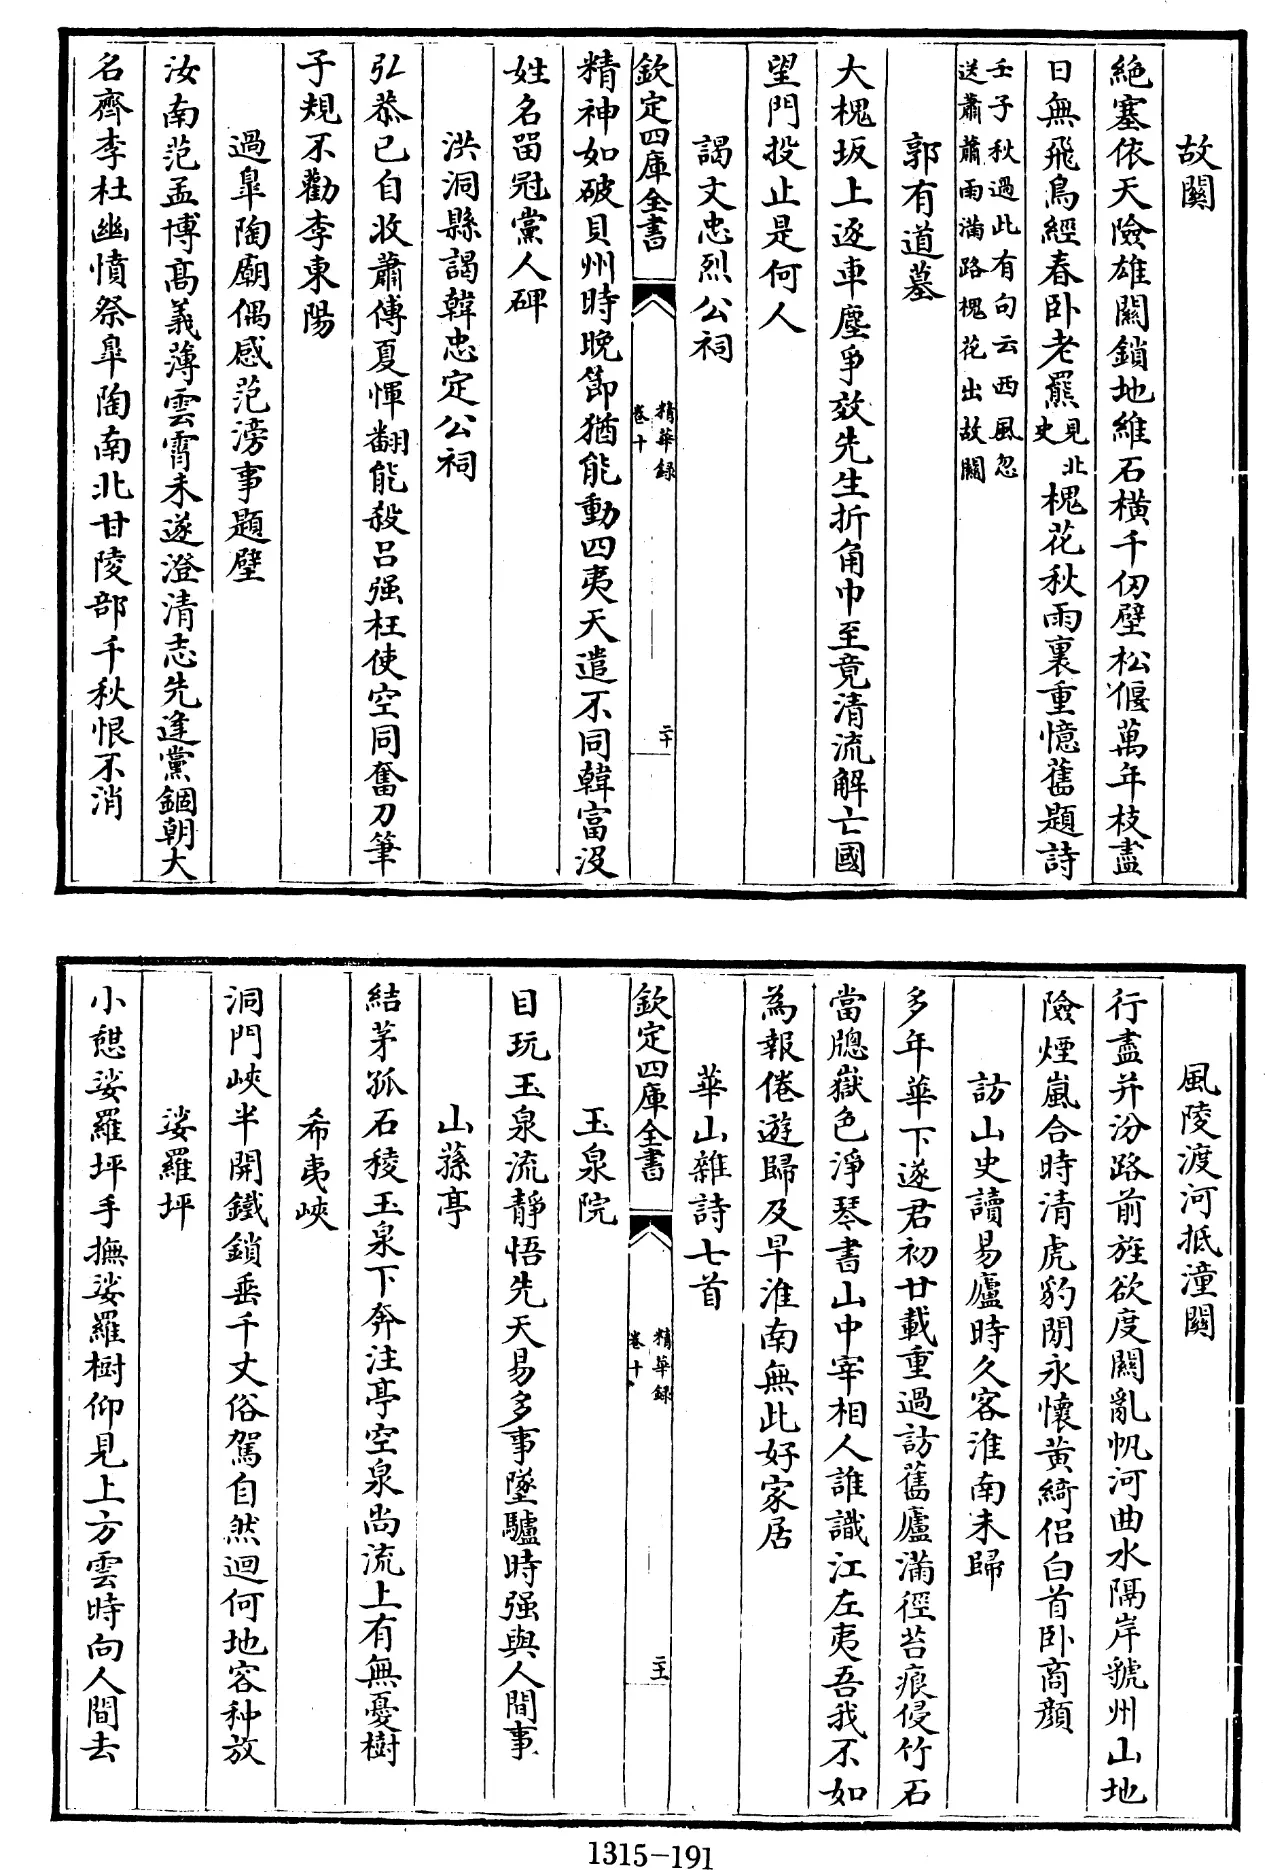 故關
絶塞依天險雄關鎖地維石横千仞壁松偃萬年枝盡
日無飛鳥經春卧老羆見北史槐花秋雨裏重憶舊題詩
壬子秋過此有句云西風忽
送蕭蕭雨滿路槐花出故關
郭有道墓
大槐坂上逐車塵爭效先生折角巾至竟清流解亡國
望門投止是何人
謁文忠烈公祠
欽定四庫全書
精華録
卷十
二十
精神如破貝州時晚節猶能動四夷天遣不同韓富没
姓名留冠黨人碑
洪洞縣謁韓忠定公祠
弘恭已自收蕭傅夏惲翻能殺吕强枉使空同奮刀筆
子規不勸李東陽
過臯陶廟偶感范滂事題壁
汝南范孟博髙義薄雲霄未遂澄清志先逢黨錮朝大
名齊李杜幽憤祭臯陶南北甘陵部千秋恨不消
風陵渡河抵潼關
行盡并汾路前旌欲度關亂帆河曲水隔岸虢州山地
險煙嵐合時清虎豹閒永懷黄綺侣白首卧商顔
訪山史讀易廬時久客淮南未歸
多年華下遂君初廿載重過訪舊廬滿徑苔痕侵竹石
當牕嶽色淨琴書山中宰相人誰識江左夷吾我不如
為報倦遊歸及早淮南無此好家居
華山雜詩七首
欽定四庫全書
精華録
卷十
二十一
玉泉院
目玩玉泉流靜悟先天易多事墜驢時强與人間事
山蓀亭
結茅孤石稜玉泉下奔注亭空泉尚流上有無憂樹
希夷峽
洞門峽半開鐵鎖垂千丈俗駕自然迴何地容种放
娑羅坪
小憩娑羅坪手撫娑羅樹仰見上方雲時向人間去
1315-191